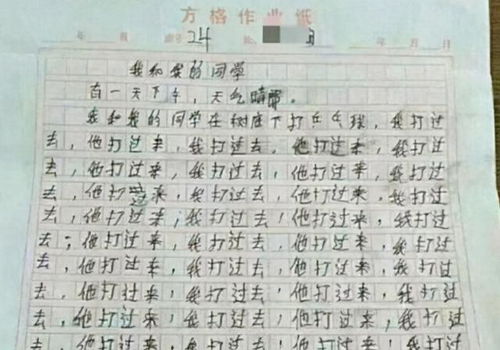 方格作业纸
年 班 座号 24 姓 月 年 月 日
我和我的同学
有一天下午,天气晴朗。
我和我的同学在树底下打乒乓球,我打过
去,他打过来,我打过去,他打过来,我打过
去,他打过来,我打过去,他打过来,我打过
去,他打过来,我打过去,他打过来,我打过
去,他打过来,我打过去,他打过来,我打过
去,他打过来,我打过去,他打过来,我打过
去,他打过来,我打过去,他打过来,我打过
去,他打过来,我打过去,他打过来,我打过
去,他打过来,我打过去,他打过来,我打过
去,他打过来,我打过去,他打过来,我打过